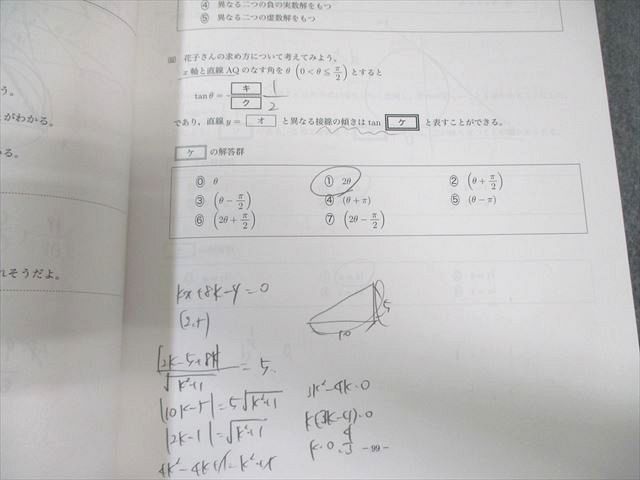 ④ 異なる二つの負の実数解をもつ
⑤ 異なる二つの虚数解をもつ
花子さんの求め方について考えてみよう。
x 軸と直線 AQ のなす角を θ (0<θ≦π/2) とすると
tanθ = キ/ク 1/2
であり，直線 y = オ と異なる接線の傾きは tan ケ と表すことができる。
ケ の解答群
⓪ θ ① 2θ ② (θ+π/2)
③ (θ-π/2) ④ (θ+π) ⑤ (θ-π)
⑥ (2θ+π/2) ⑦ (2θ-π/2)
う。
がわかる。
る。
れそうだよ。
kx+8k-y=0
|2k-5+8k|/√k²+1 = 5
|10k-5|=5√k²+1
|2k-1|=√k²+1
4k²-4k+1=k²+1
3k²-4k=0
k(3k-4)=0
k=0, 4/3
5
10
-99-